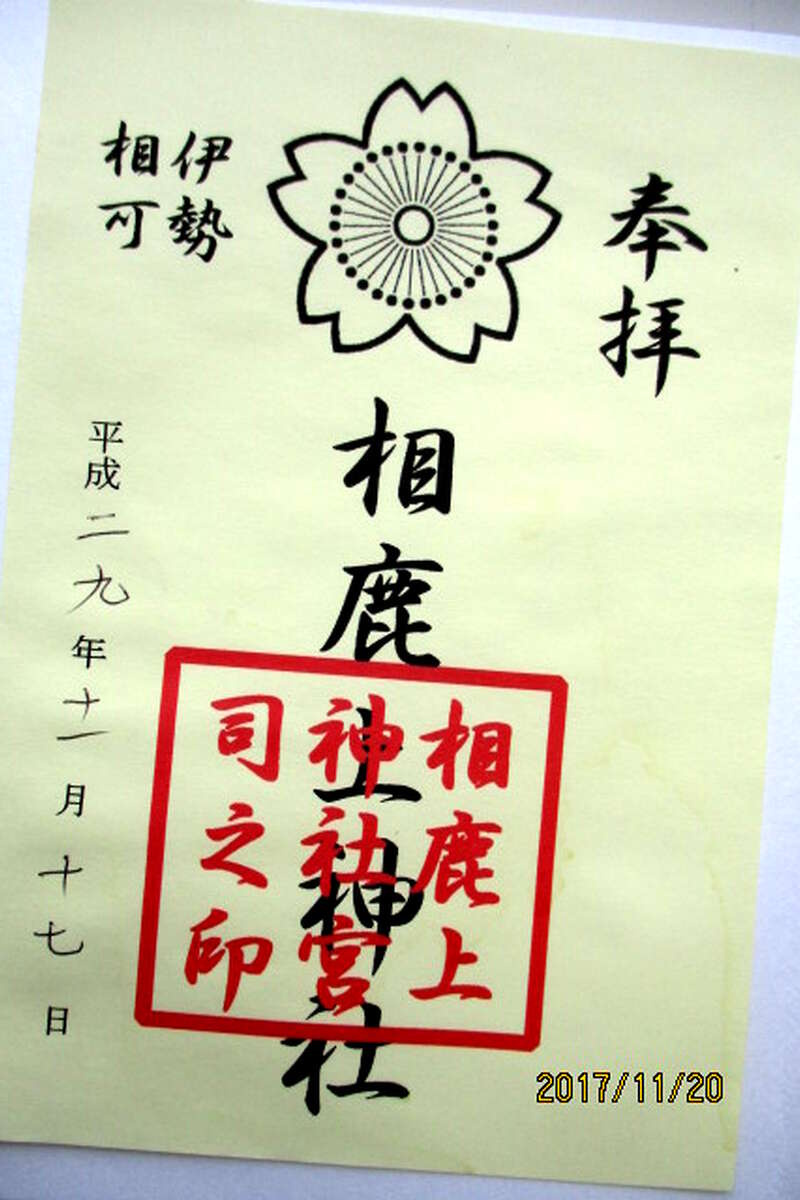 奉拝
相鹿上神社
相鹿上
神社宮
司之印
伊勢
相可
平成二九年十一月十七日
2017/11/20